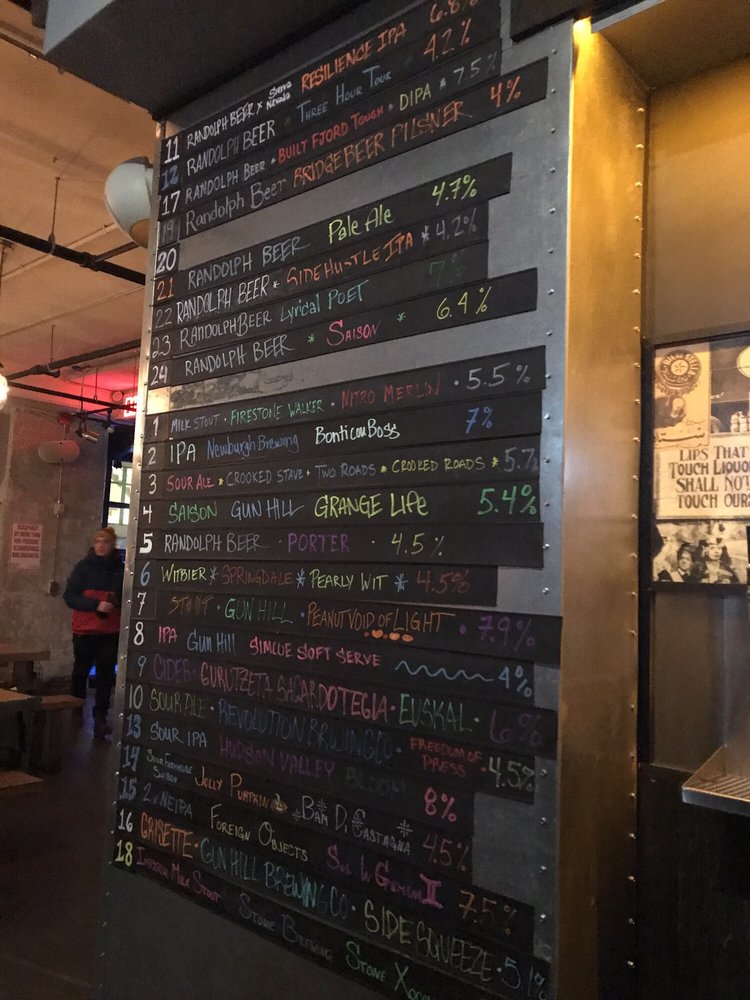 11 RANDOLPH BEER x Sierra Nevada RESILIENCE IPA 6.8%
12 RANDOLPH BEER * THREE HOUR TOUR * 4.2%
17 RANDOLPH BEER * BUILT FJORD TOUGH * DIPA * 7.5%
19 Randolph Beer BRIDGEBEER PILSNER 4%
20 RANDOLPH BEER Pale Ale 4.7%
21 RANDOLPH BEER * SIDE HUSTLE IPA * 4.2%
22 RANDOLPH BEER Lyrical POET 7%
23 RANDOLPH BEER * SAISON * 6.4%
24
1 MILK STOUT · FIRESTONE WALKER · NITRO MERLIN · 5.5%
2 IPA Newburgh Brewing Bonticou Boss 7%
3 SOUR ALE * CROOKED STAVE * TWO ROADS * CROOKED ROADS * 5.7%
4 SAISON GUN HILL GRANGE LIFE 5.4%
5 RANDOLPH BEER · PORTER · 4.5%
6 WITBIER * SPRINGDALE * PEARLY WIT * 4.5%
7 STOUT · GUN HILL · PEANUT VOID OF LIGHT · 7.9%
8 IPA Gun Hill SIMCUE SOFT SERVE 4%
9 CIDER · GURUTZETA SAGARDOTEGIA · EUSKAL · 6%
10 SOUR ALE · REVOLUTION BRWING CO · FREEDOM OF PRESS · 4.5%
13 SOUR IPA HUDSON VALLEY BLOOM 8%
14 SOUR FARMHOUSE SAISON JOLLY PUMPKIN * BAM DI CASTAGNA * 4.5%
15 2x NEIPA FOREIGN OBJECTS II 7.5%
16 GRISETTE · GUN HILL BREWING CO · SIDE SQUEEZE · 5.1%
18 IMPERIAL MILK STOUT STONE BREWING STONE
OCCUPANCY BY MORE THAN
LIPS THAT
TOUCH LIQUOR
SHALL NOT
TOUCH OURS